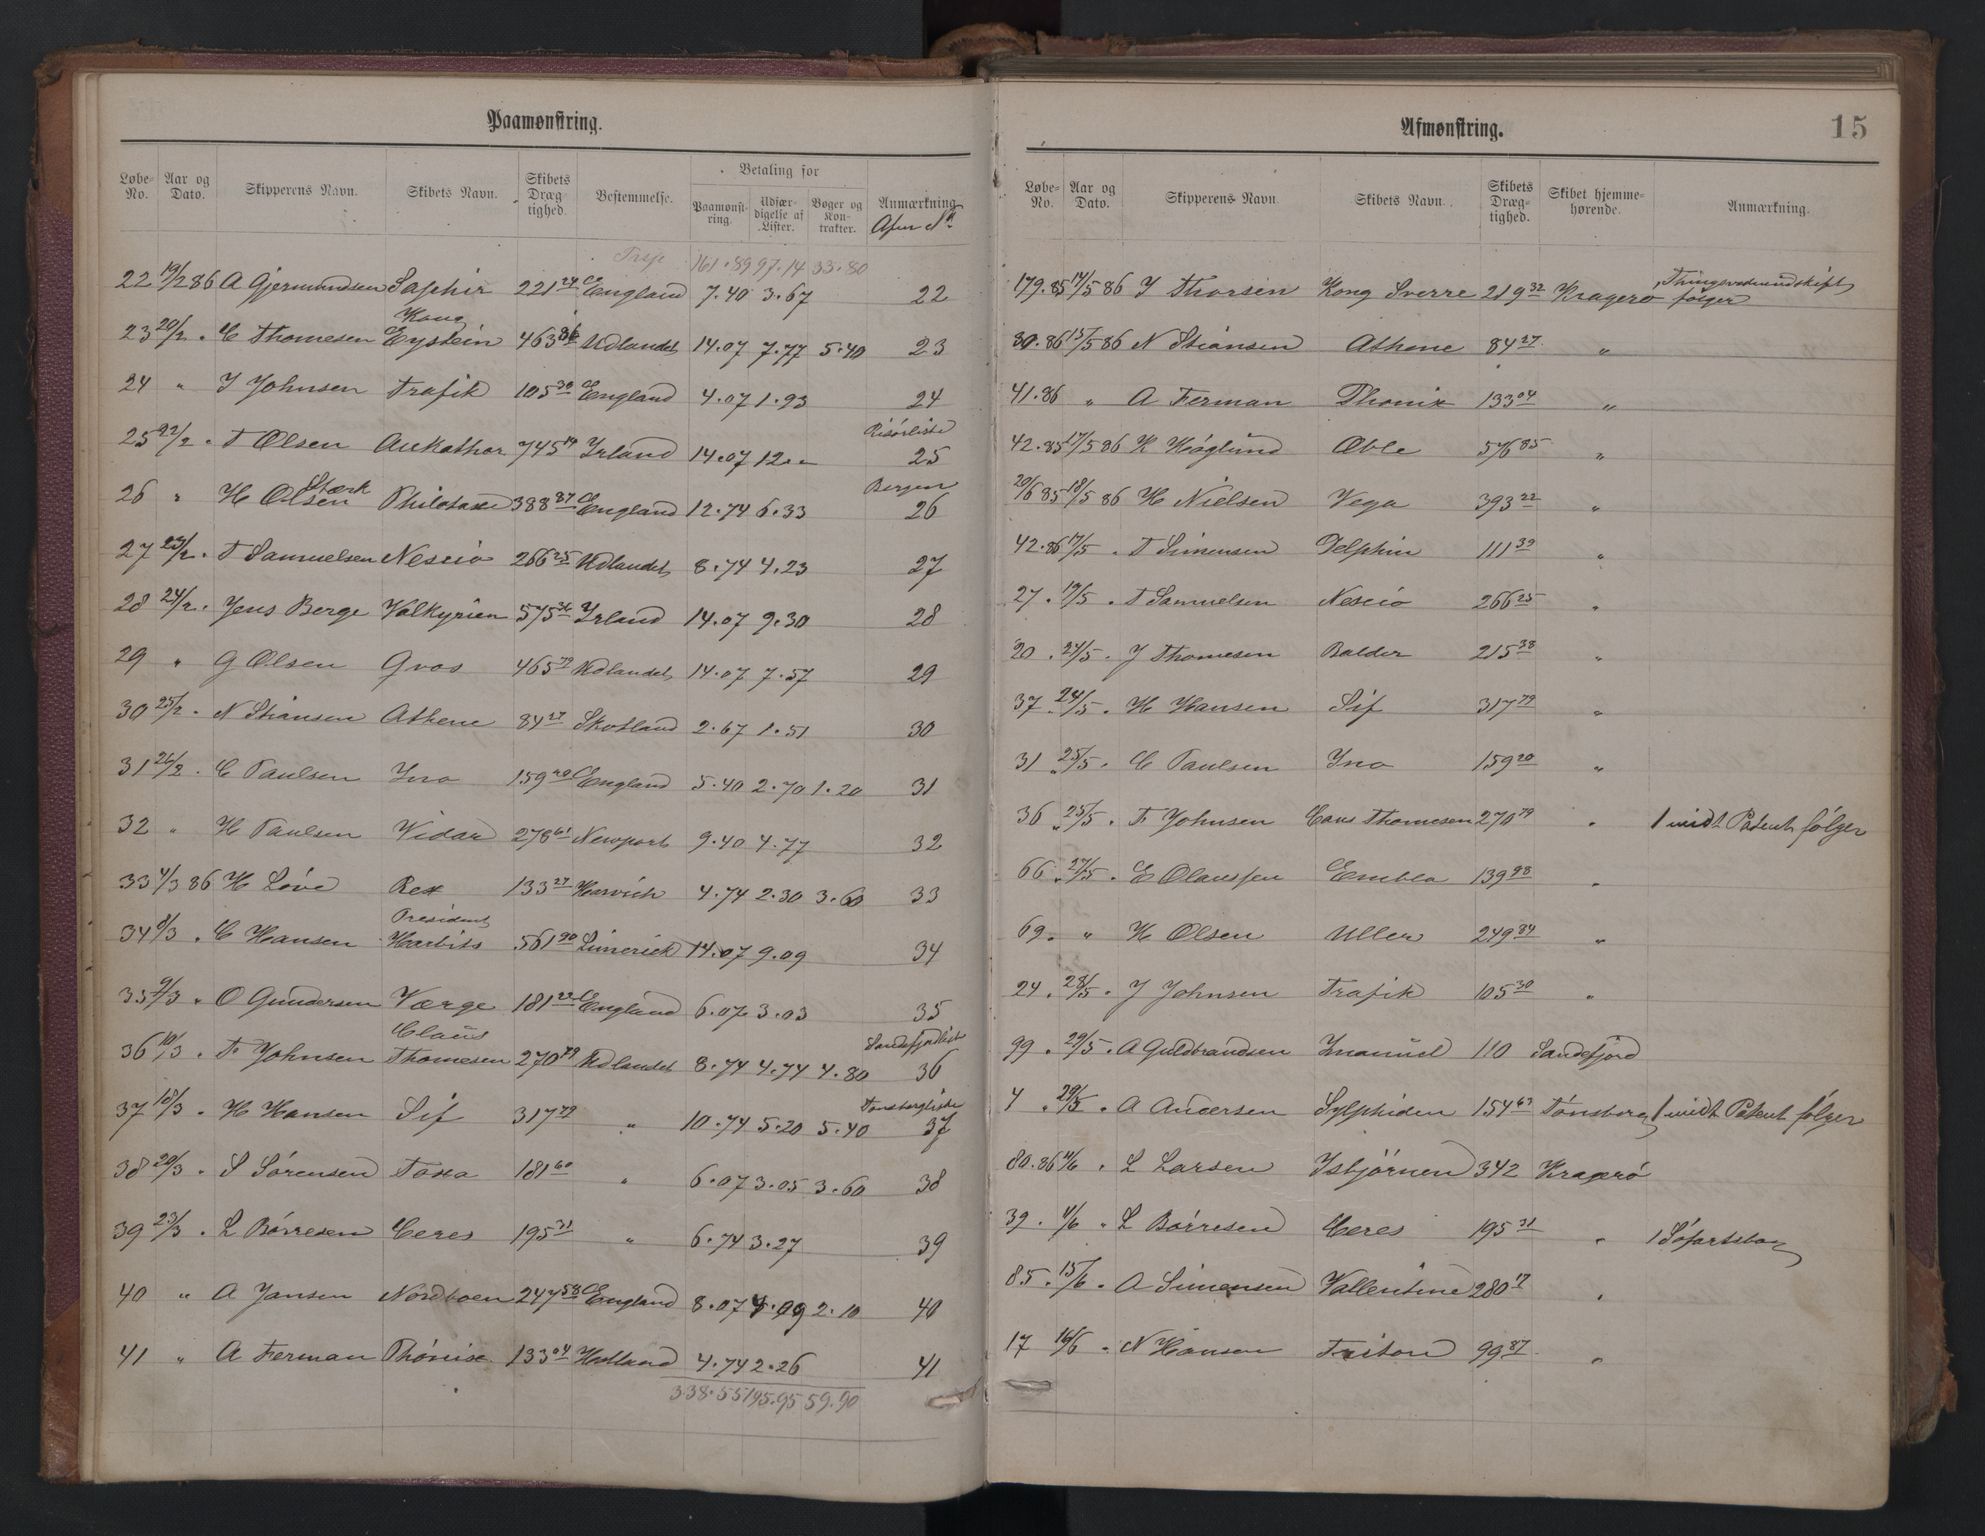 Paamønstring.
Løbe-No. Aar og Dato. Skipperens Navn. Skibets Navn. Skibets Dræg-tighed. Bestemmelse. Betaling for Paamønst-ring. Udfær-digelse af Lister. Bøger og Kon-trakter. Anmærkning
Trsp. 161.89 97.14 33.80
22 19/2 86 A Gjermundsen Saphir 221 24 England 7.40 3.67 22
23 20/2 " C Thomesen Kong Eystein 463 86 Udlandet 14.07 7.77 5.40 23
24 " J Johnsen Trafik 105 30 England 4.07 1.93 24
25 22/2 " T Olsen Aukathor 745 19 Irland 14.07 12.– Risörliste 25
26 " H Stærk Olsen 388 87 England 12.74 6.33 Bergen 26
27 23/2 " T Samuelsen Nescio 266 25 Udlandet 8.74 4.23 27
28 24/2 " Jens Berge Valkyrien 575 36 Irland 14.07 9.30 28
29 " G Olsen Gros 465 72 Udlandet 14.07 7.57 29
30 25/2 " N Stiansen Athene 84 27 Skotland 2.67 1.51 30
31 26/2 " C Paulsen Ino 159 20 England 5.40 2.70 1.20 31
32 " H Paulsen Vidar 278 61 Newport 9.40 4.77 32
33 4/3 86 H Löve Rex 133 27 Harvich 4.74 2.30 3.60 33
34 8/3 " C Hansen President Harbits 561 90 Limerick 14.07 9.09 34
35 9/3 " O Gundersen Værge 181 22 England 6.07 3.03 35
36 10/3 " F Johnsen Claus Thomesen 270 79 Udlandet 8.74 4.74 4.80 Sandefjordliste 36
37 18/3 " H Hansen Sif 317 79 " 10.74 5.20 5.40 Tønsbergliste 37
38 20/3 " S Sörensen Toxa 181 60 " 6.07 3.05 3.60 38
39 23/3 " L Börresen Ceres 195 31 " 6.74 3.27 39
40 " A Jansen Nordboen 247 58 England 8.07 4.09 2.10 40
41 " A Ferman Phönix 133 04 Holland 4.74 2.26 41
338.55 195.95 59.90
Afmønstring. 15
Løbe-No. Aar og Dato. Skipperens Navn Skibets Navn. Skibets Dræg-tighed. Skibet hjemme-hørende. Anmærkning.
179.85 14/5 86 J Thorsen Kong Sverre 219 32 Kragerø Thingsvidneudskift følger
30.86 15/5 86 N Stiansen Athene 84 27 "
41.86 " A Ferman Phönix 133 04 "
42.85 17/5 86 K Höglund Oble 576 85 "
20/6 85 18/5 86 H Nielsen Vega 393 22 "
42.86 17/5 " T Simensen Delphin 111 39 "
27 " 19/5 " T Samuelsen Nescio 266 25 "
20 " 24/5 " J Thomesen Balder 215 38 "
37 " 24/5 " H Hansen Sif 317 79 "
31 " 25/5 " C Paulsen Ino 159 20 "
36 " 25/5 " F Johnsen Claus Thomesen 270 79 " 1 midt Patent følger
66 " 27/5 " E Olaussen Embla 139 98 "
69 " " H Olsen Uller 249 84 "
24 " 28/5 " J Johnsen Trafik 105 30 "
99 " 29/5 " A Guldbrandsen Imanuel 110 Sandefjord
4 " 29/5 " A Andersen Sylphiden 154 63 Tønsberg 1 midt Patent følger
80.86 4/6 " L Larsen Isbjörnen 342 Kragerö
39 " 4/6 " L Börresen Ceres 195 31 " 1 Söfartsbog
85 " 15/6 " A Simensen Vallentine 280 17 "
17 16/6 " N Hansen Triton 99 87 "